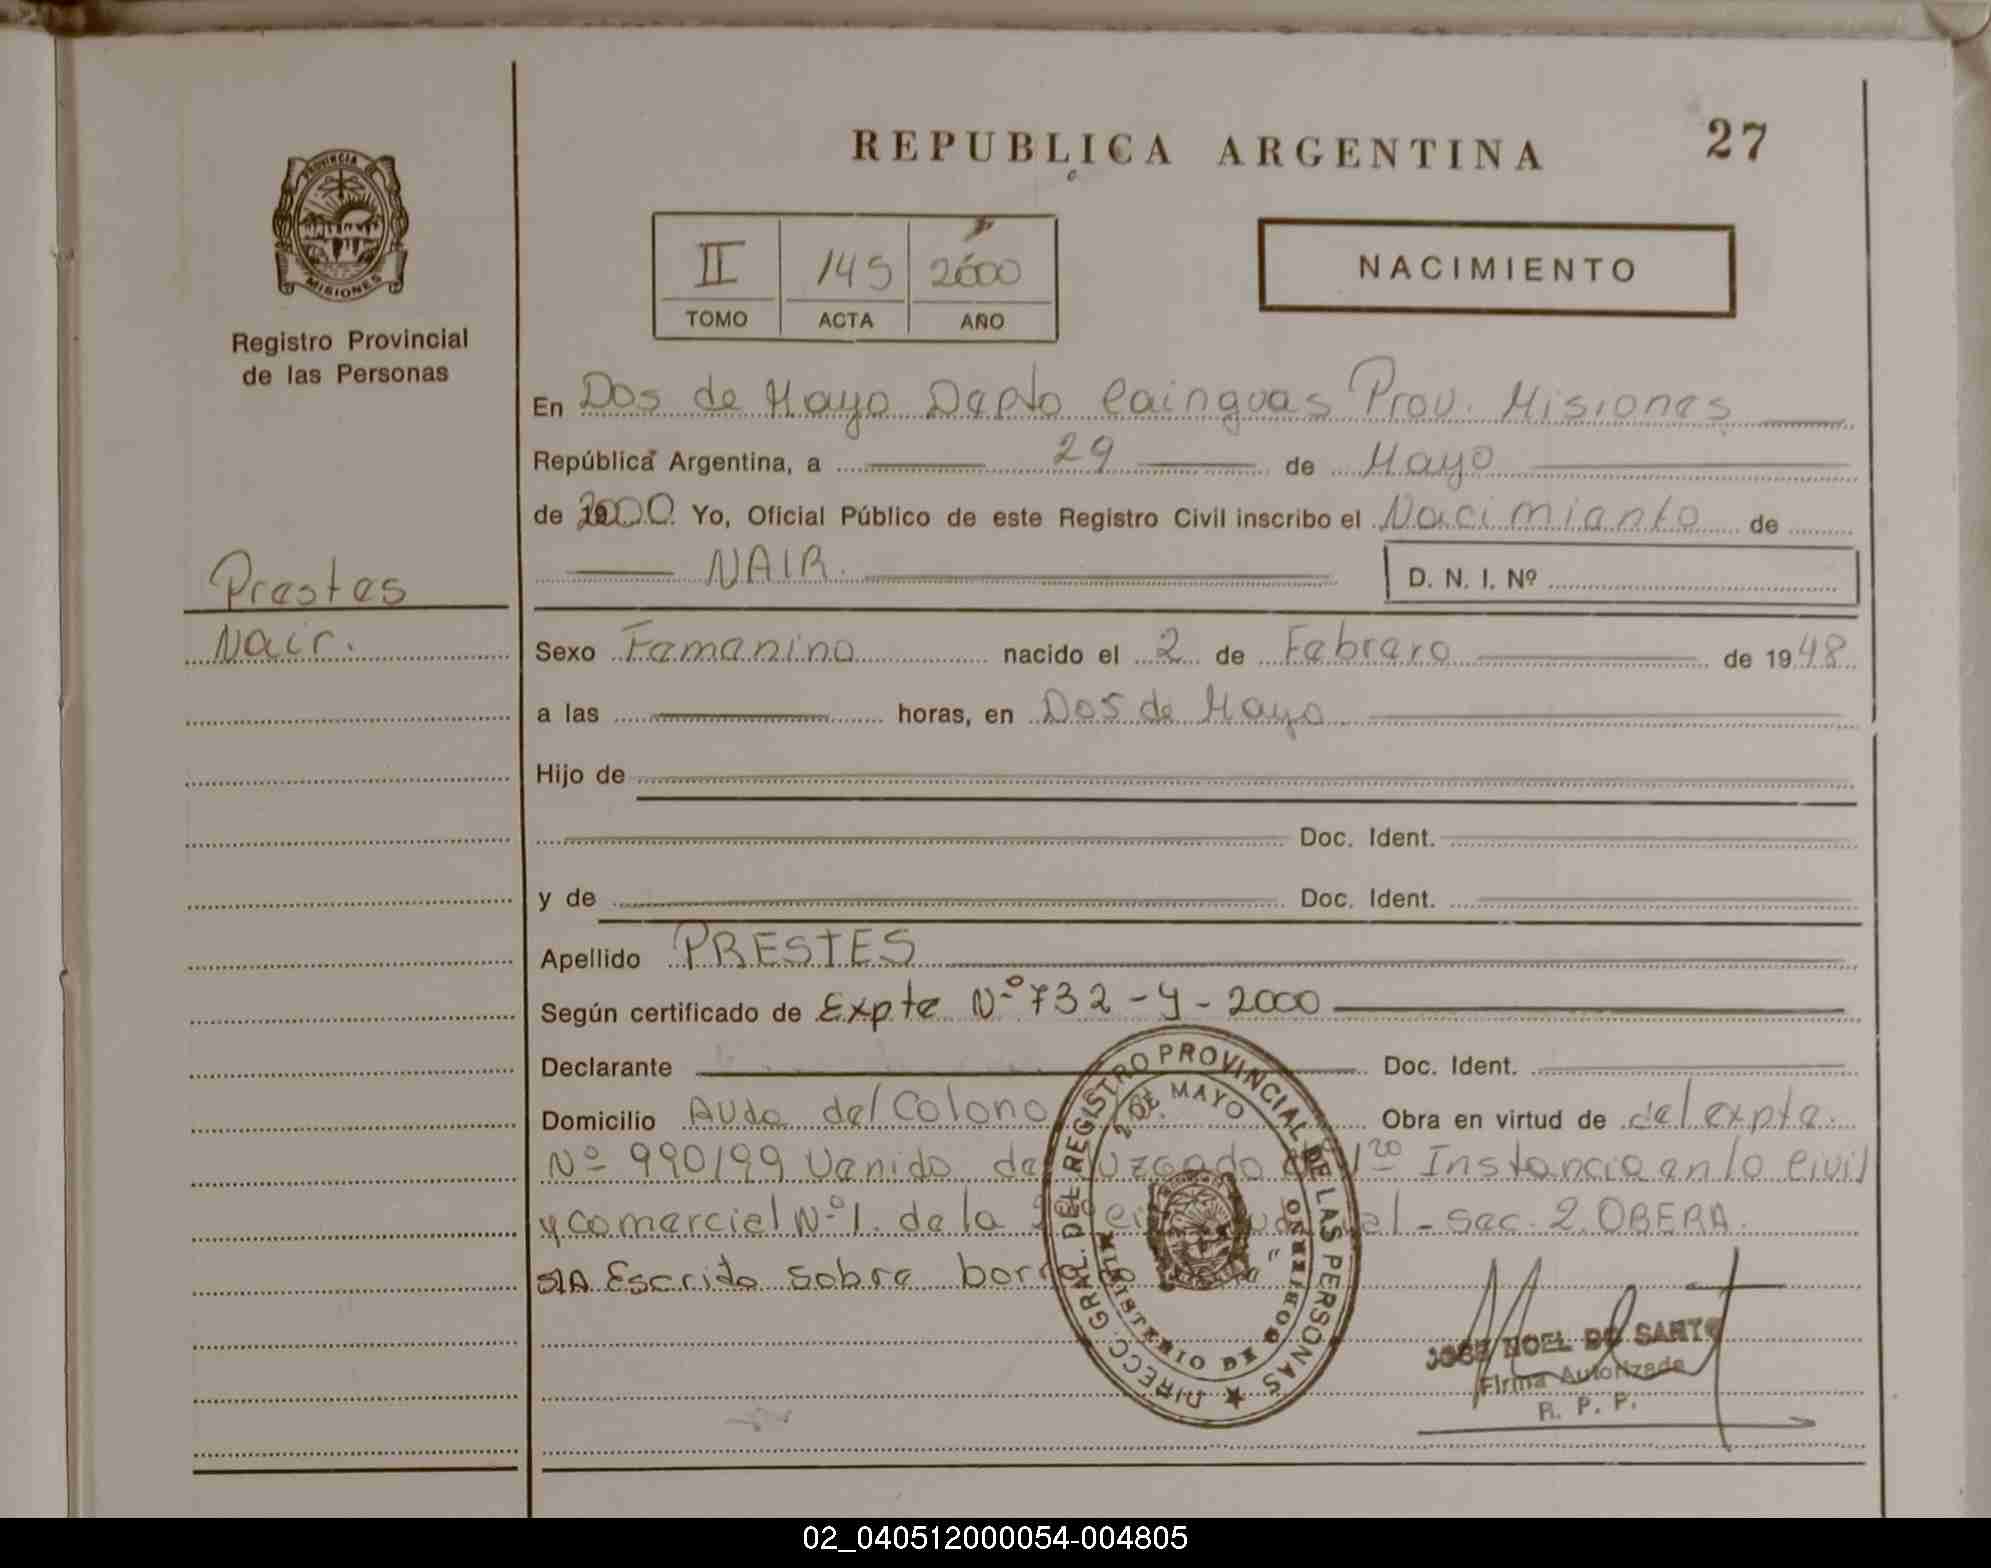 REPUBLICA ARGENTINA 27
PROVINCIA MISIONES
Registro Provincial
de las Personas
II 145 2000
TOMO ACTA AÑO
NACIMIENTO
En Dos de Mayo Depto Cainguas Prov. Misiones
República Argentina, a 29 de Mayo
de 2000 Yo, Oficial Público de este Registro Civil inscribo el Nacimiento de
NAIR.
D. N. I. Nº
Prestes
Nair.
Sexo Femenino nacido el 2 de Febrero de 1948
a las horas, en Dos de Mayo
Hijo de
Doc. Ident.
y de Doc. Ident.
Apellido PRESTES
Según certificado de Expte Nº 732 - y - 2000
Declarante Doc. Ident.
Domicilio Avda del Colono Obra en virtud de del expte.
Nº 990/99 Venido de Juzgado 1ra Instancia en lo Civil
y comercial Nº 1. de la - sec. 2. OBERA.
Escrito sobre
DIRECC. GRAL. DEL REGISTRO PROVINCIAL DE LAS PERSONAS
2 DE MAYO
MINISTERIO DE GOBIERNO
JOSE NOEL DO SANTO
Firma Autorizada
R. P. P.
02_040512000054-004805